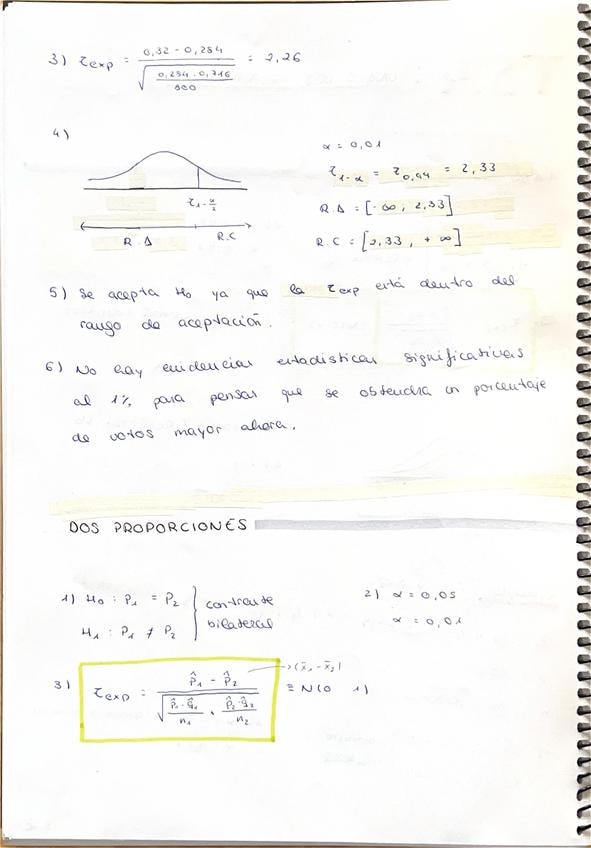 3) Zexp = (0,32 - 0,284) / √(0,284 · 0,716 / 800) = 2,26
4)
α = 0,01
Z1-α = Z0,99 = 2,33
R.A = [-∞, 2,33]
R.C = [2,33, +∞]
Z1-α/2
R.A R.C
5) Se acepta H0 ya que la Zexp está dentro del
rango de aceptación.
6) No hay evidencias estadísticas significativas
al 1% para pensar que se obtendrá un porcentaje
de votos mayor ahora.
DOS PROPORCIONES
1) H0 : P1 = P2
H1 : P1 ≠ P2
contraste
bilateral
2) α = 0,05
α = 0,01
→(x̄1 - x̄2)
3) Zexp = (P̂1 - P̂2) / √(P̂1·q̂1 / n1 + P̂2·q̂2 / n2) ≡ N(0 1)